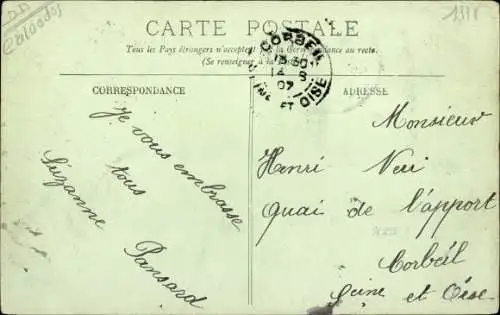 CARTE POSTALE
Tous les Pays étrangers n'acceptent la Correspondance au recto.
(Se renseigner à la
CORBEIL
13 30
14 8
07
SEINE ET OISE
CORRESPONDANCE
ADRESSE
Je vous embrasse
tous
Suzanne
Pansard
Monsieur
Henri
Quai de l'apport
Corbeil
Seine et Oise